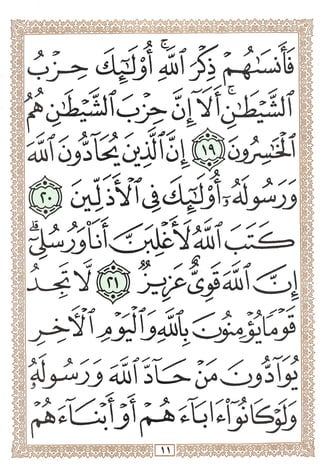 فَأَنسَىٰهُمْ ذِكْرَ ٱللَّهِ ۚ أُو۟لَـٰٓئِكَ حِزْبُ
ٱلشَّيْطَـٰنِ ۚ أَلَآ إِنَّ حِزْبَ ٱلشَّيْطَـٰنِ هُمُ
ٱلْخَـٰسِرُونَ ١٩ إِنَّ ٱلَّذِينَ يُحَآدُّونَ ٱللَّهَ
وَرَسُولَهُۥٓ أُو۟لَـٰٓئِكَ فِى ٱلْأَذَلِّينَ ٢٠
كَتَبَ ٱللَّهُ لَأَغْلِبَنَّ أَنَا۠ وَرُسُلِىٓ ۚ
إِنَّ ٱللَّهَ قَوِىٌّ عَزِيزٌ ٢١ لَّا تَجِدُ
قَوْمًا يُؤْمِنُونَ بِٱللَّهِ وَٱلْيَوْمِ ٱلْـَٔاخِرِ
يُوَآدُّونَ مَنْ حَآدَّ ٱللَّهَ وَرَسُولَهُۥ
وَلَوْ كَانُوٓا۟ ءَابَآءَهُمْ أَوْ أَبْنَآءَهُمْ
١١